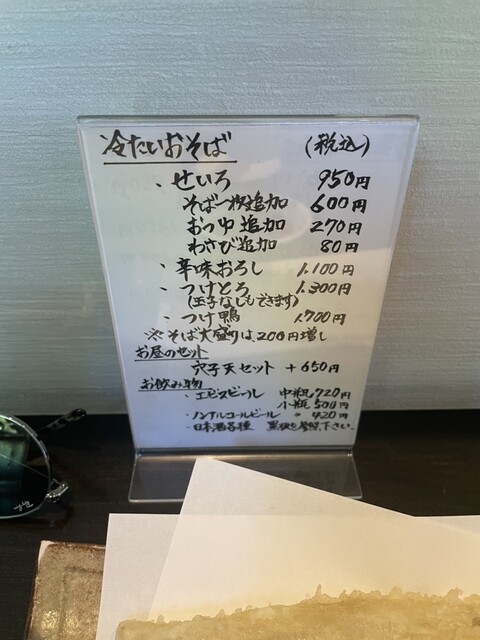 冷たいおそば (税込)
・せいろ 950円
そば一枚追加 600円
おつゆ追加 270円
わさび追加 80円
・辛味おろし 1.100円
・つけとろ 1.300円
(玉子なしもできます)
・つけ鴨 1.700円
※そば大盛りは200円増し
お昼のセット
穴子天セット +650円
お飲み物
・エビスビール 中瓶720円
小瓶500円
・ノンアルコールビール 〃 420円
・日本酒各種 黒板を参照下さい。